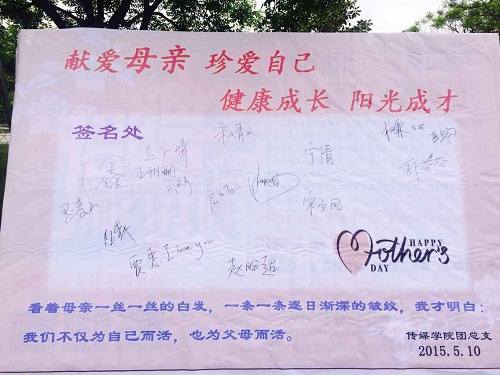 献爱母亲 珍爱自己
健康成长 阳光成才
签名处
宁倩
王鑫
贾惠 I love you
赵盼超
HAPPY
Mother's
DAY
看着母亲一丝一丝的白发，一条一条逐日渐深的皱纹，我才明白：
我们不仅为自己而活，也为父母而活。
传媒学院团总支
2015.5.10